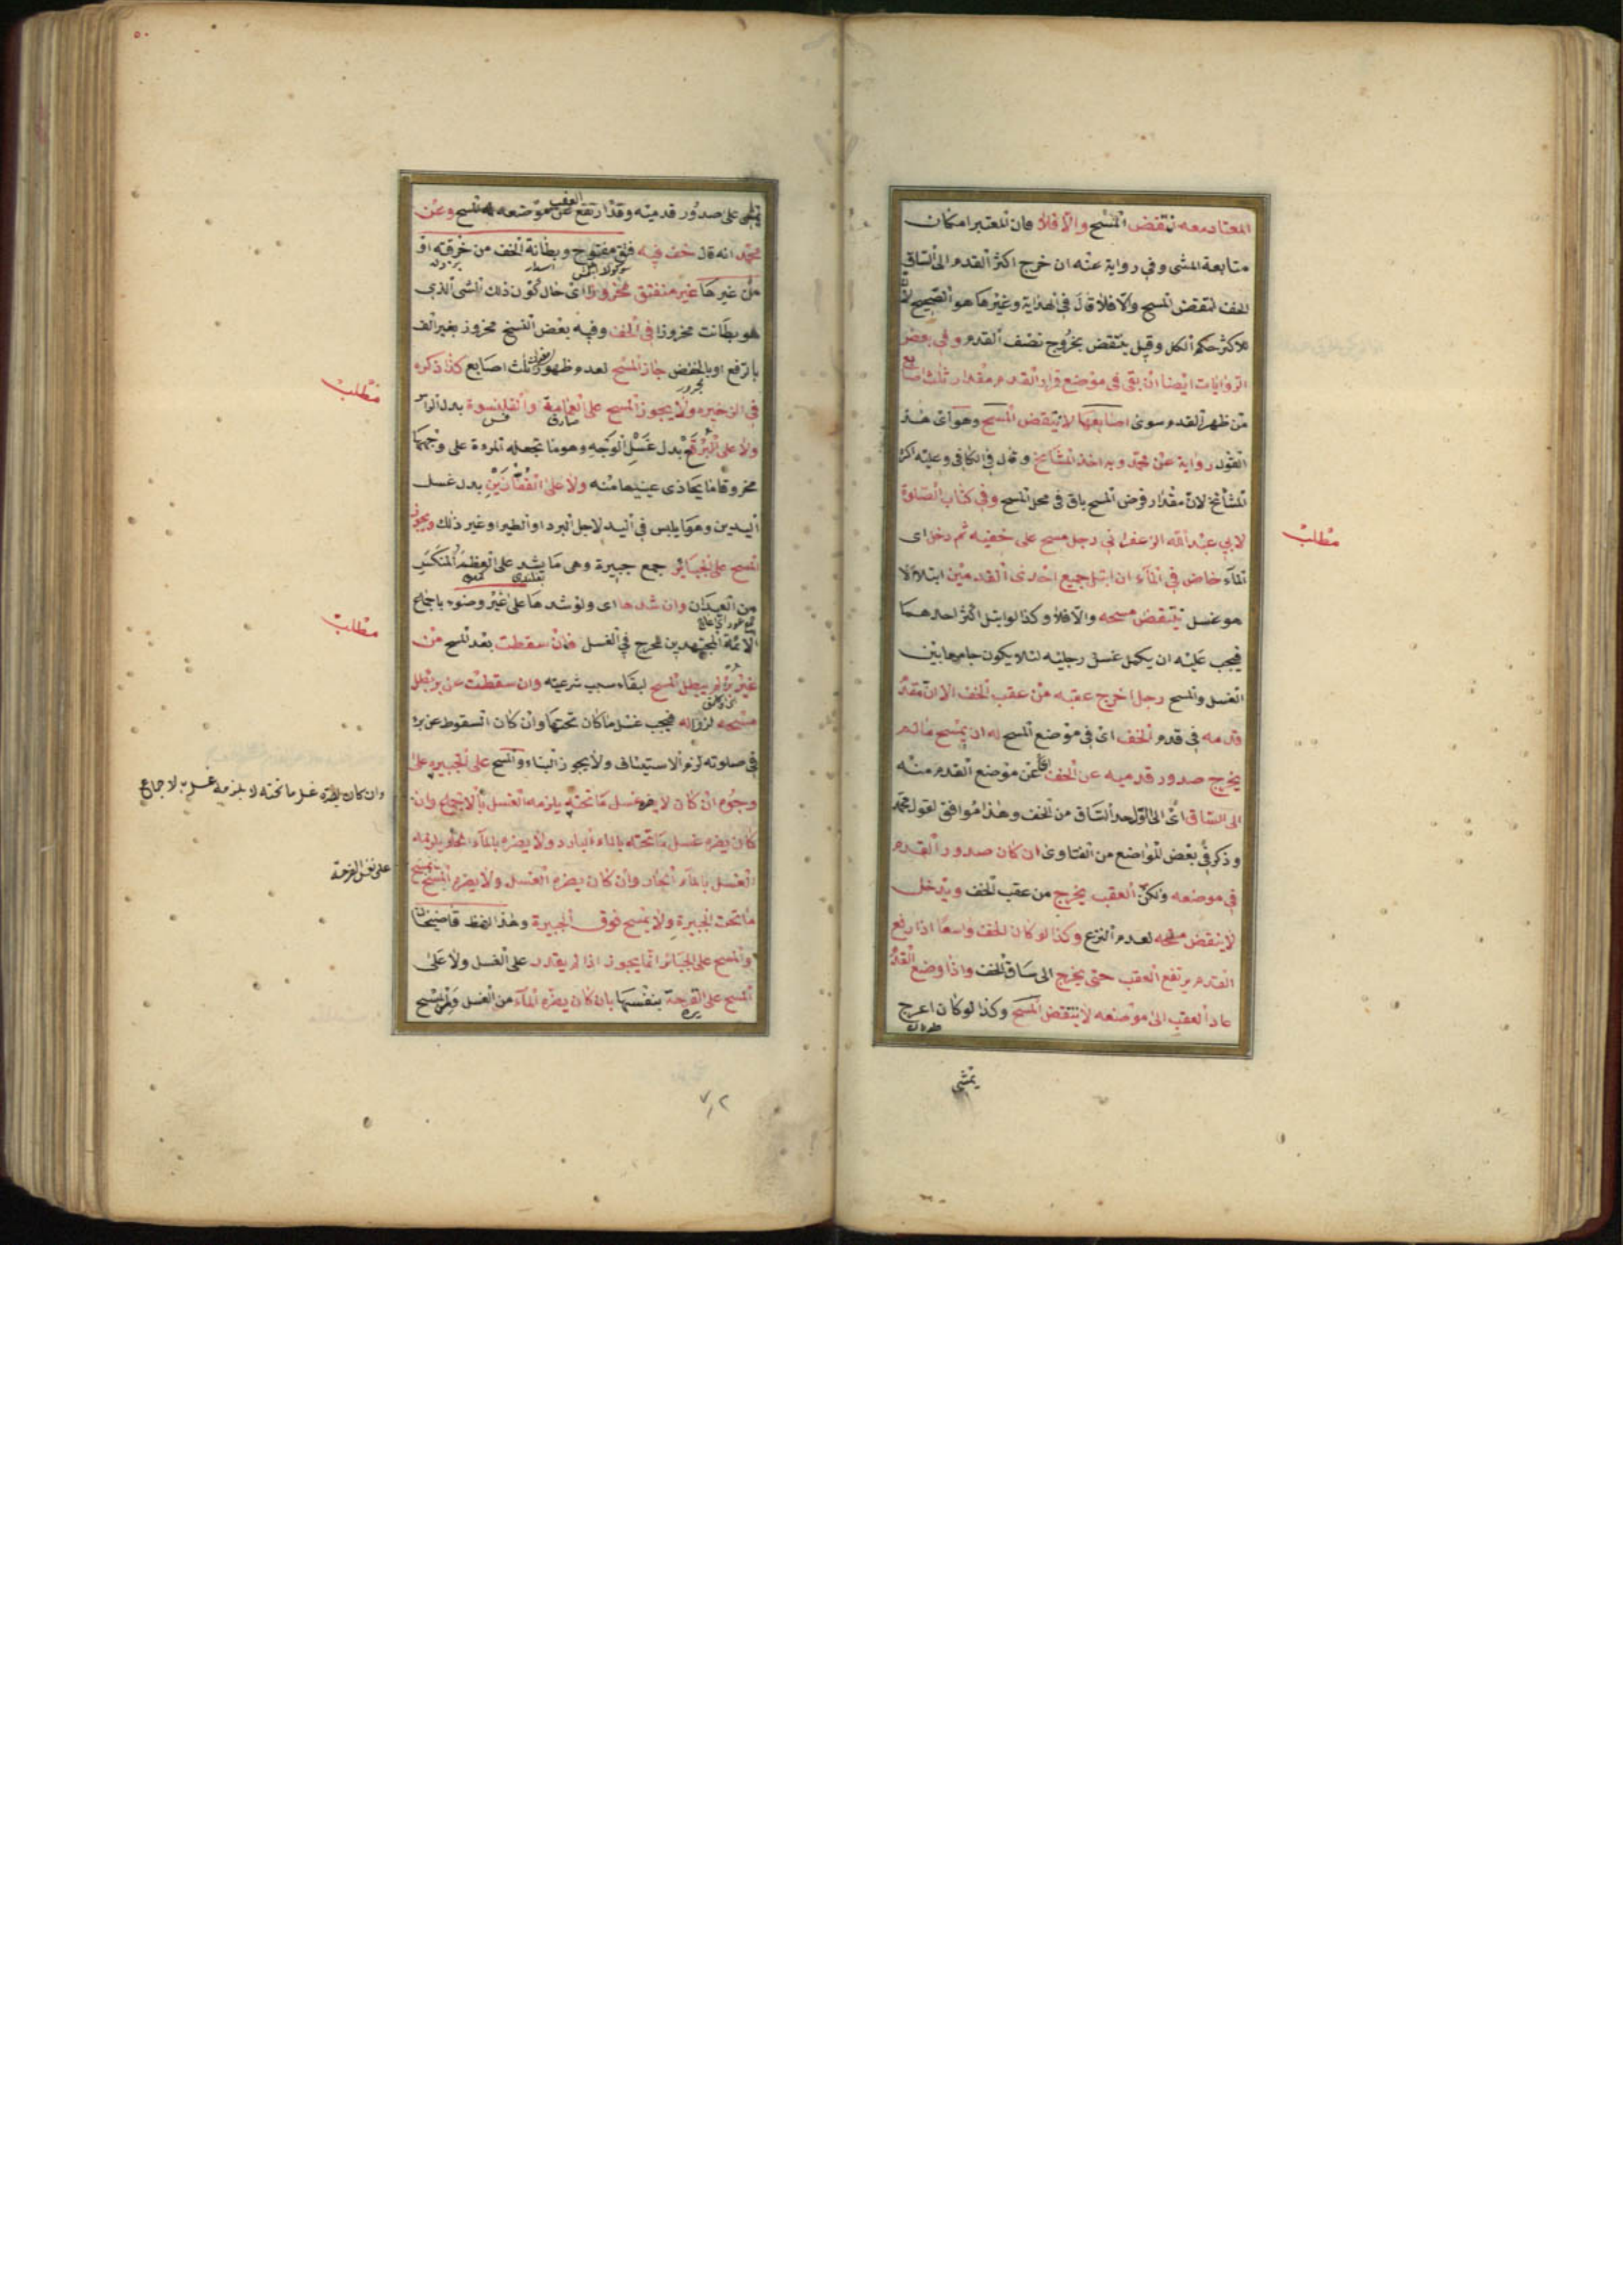 المعتاد معه تنتقض المسح والا فلا فان المعتبر امكان
متابعة المشى وفي رواية عنه ان خرج اكثر القدم الى الساق
الخف انتقض المسح والا فلا قال في الهداية وغيرها هو الصحيح لان
للاكثر حكم الكل وقيل ينتقض بخروج نصف القدم وفي بعض
الروايات ايضا ان بقى في موضع قرار القدم مقدار ثلث اصابع
من ظهر القدم سوى اصابعها لا ينتقض المسح وهو اى هذا
القول رواية عن محمد وبه اخذ المشايخ وقال في الكافي وعليه اكثر
المشايخ لان مقدار فرض المسح باق في محل المسح وفي كتاب الصلوة
لابي عبد الله الزعفراني رجل مسح على خفيه ثم دخل اى
الماء خاض في الماء ان ابتل جميع احدى القدمين ابتلالا
هو غسل ينتقض مسحه والا فلا وكذا لو ابتل اكثر احدهما
فيجب عليه ان يكمل غسل رجليه لئلا يكون جامعا بين
الغسل والمسح رجل اخرج عقبه من عقب الخف الا ان مقدم
قدمه في قدم الخف اى في موضع المسح له ان يمسح مالم
يخرج صدور قدميه عن الخف اى عن موضع القدم منه
الى الساق اى الى اول حد الساق من الخف وهذا موافق لقول محمد
وذكر في بعض المواضع من الفتاوى ان كان صدور القدم
في موضعه ولكن العقب يخرج من عقب الخف ويدخل
لا ينتقض مسحه لعدم النزع وكذا لو كان الخف واسعا اذا رفع
القدم يرتفع العقب حتى يخرج الى ساق الخف واذا وضع القدم
عاد العقب الى موضعه لا ينتقض المسح وكذا لو كان اعرج
يمشى
مطلب
يمشى على صدور قدميه وقد ارتفع العقب عن موضعه له المسح وعن
محمد انه قال خف فيه فتق مفتوح وبطانة الخف من خرقة او
من غيرها غير منفتق مخروزا اى حال كون ذلك الشى الذى
هو بطانت مخروزا في الخف وفيه بعض النسخ مخروز بغير الف
بالرفع او بالخفض جاز المسح لعدم ظهور ثلث اصابع كذا ذكره
في الذخيره ولا يجوز المسح على العمامة والقلنسوة بدل الراس
ولا على البرقع بدل غسل الوجه وهو ما تجعله المروة على وجهها
مخروقا ما يحاذى عينيها منه ولا على القفازين بدل غسل
اليدين وهو ما يلبس في اليد لاجل البرد او الطير او غير ذلك ويجوز
المسح على الجبائر جمع جبيرة وهى ما يشد على العظم المنكسر
من العيدان وان شدها اى ولو شدها على غير وضوء باجماع
الائمة المجتهدين للحرج في الغسل فان سقطت بعد المسح من
غير برء لم يبطل المسح لبقاء سبب شرعيته وان سقطت عن برء بطل
مسحه لزواله فيجب غسل ما كان تحتها وان كان السقوط عن برء
في صلوته لزم الاستيناف ولا يجوز البناء والمسح على الجبيره على
وجوه ان كان لا يضره غسل ما تحته يلزمه الغسل بالاجماع وان
كان يضره غسل ما تحته بالماء البارد ولا يضره بالماء الحار يلزمه
الغسل بالماء الحار وان كان يضره الغسل ولا يضره المسح يمسح
ما تحت الجبيرة ولا يمسح فوق الجبيرة وهذا لفظ قاضيخان
والمسح على الجبائر انما يجوز اذا لم يقدر على الغسل ولا على
المسح على القرحة بنفسها بان كان يضره الماء من الغسل والمسح
مطلب
مطلب
وان كان يضره غسل ما تحته لا يلزمه غسله بالاجماع
على نفس القرحة